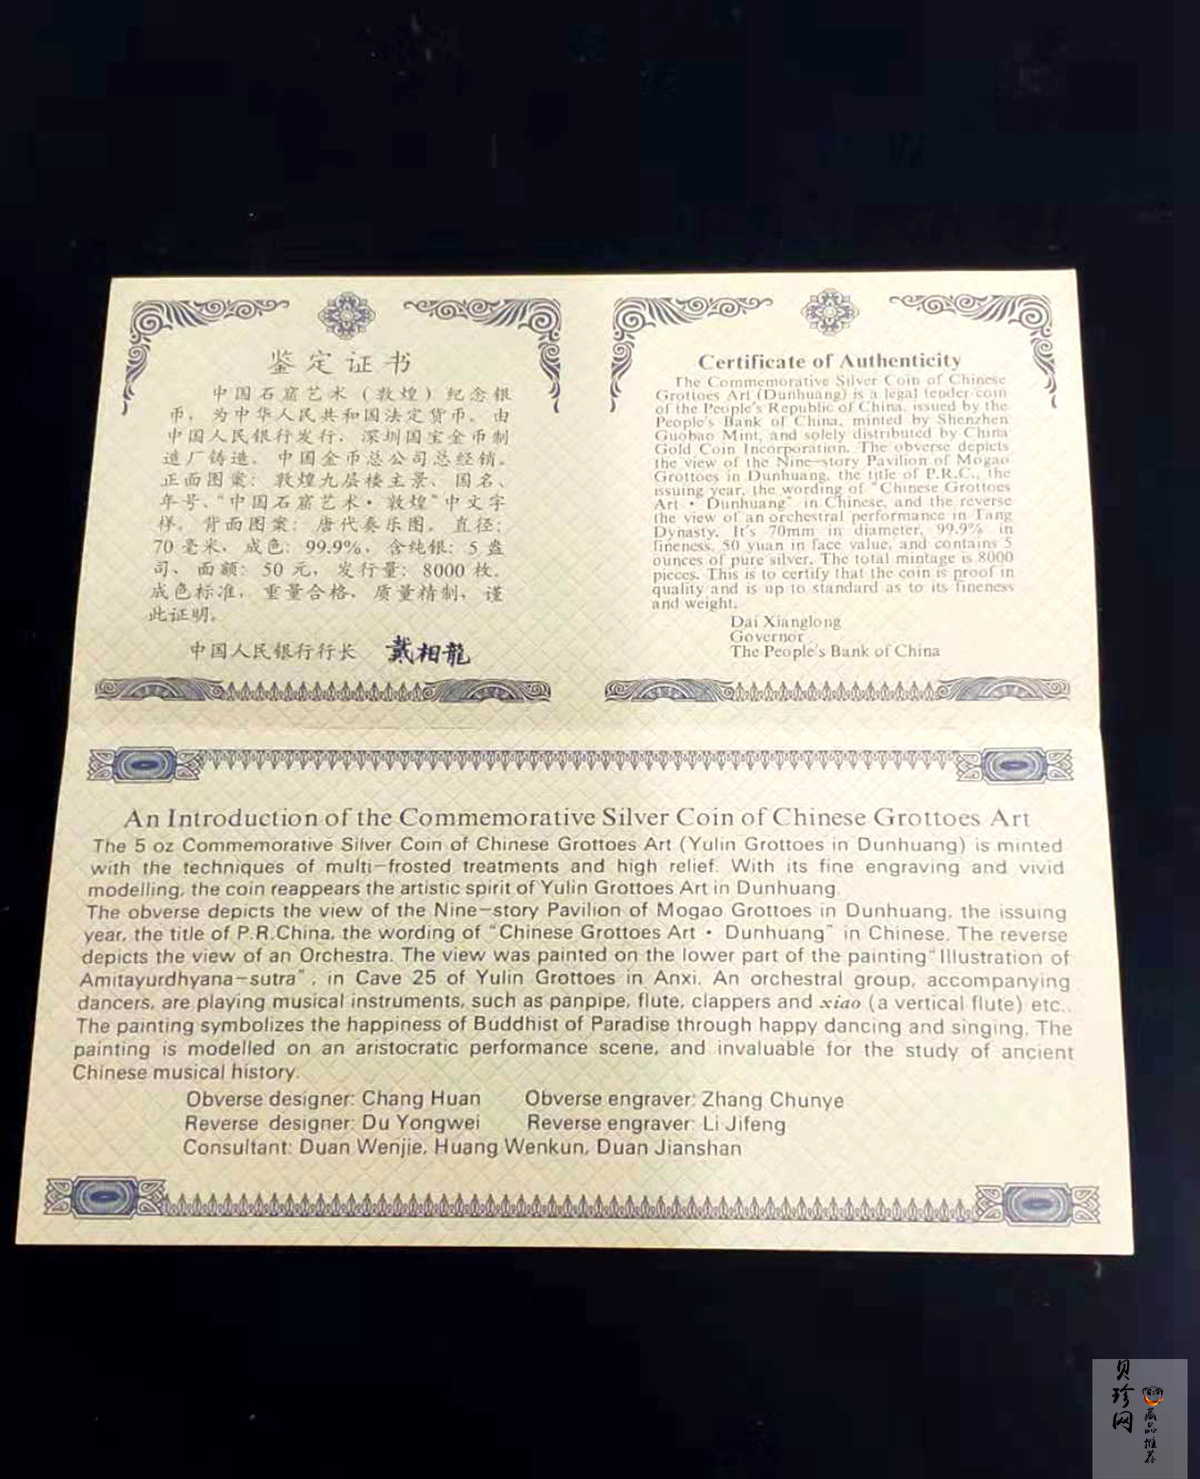 鉴定证书
中国石窟艺术（敦煌）纪念银
币，为中华人民共和国法定货币。由
中国人民银行发行，深圳国宝金币制
造厂铸造。中国金币总公司总经销。
正面图案：敦煌九层楼主景、国名、
年号、“中国石窟艺术·敦煌”中文字
样。背面图案：唐代奏乐图。直径：
70毫米，成色：99.9%，含纯银：5盎
司，面额：50元，发行量：8000枚。
成色标准，重量合格，质量精制，谨
此证明。
中国人民银行行长 戴相龍
Certificate of Authenticity
The Commemorative Silver Coin of Chinese
Grottoes Art (Dunhuang) is a legal tender coin
of the People's Republic of China, issued by the
People's Bank of China, minted by Shenzhen
Guobao Mint, and solely distributed by China
Gold Coin Incorporation. The obverse depicts
the view of the Nine-story Pavilion of Mogao
Grottoes in Dunhuang, the title of P.R.C., the
issuing year, the wording of "Chinese Grottoes
Art · Dunhuang" in Chinese, and the reverse
the view of an orchestral performance in Tang
Dynasty. It's 70mm in diameter, 99.9% in
fineness, 50 yuan in face value, and contains 5
ounces of pure silver. The total mintage is 8000
pieces. This is to certify that the coin is proof in
quality and is up to standard as to its fineness
and weight.
Dai Xianglong
Governor
The People's Bank of China
An Introduction of the Commemorative Silver Coin of Chinese Grottoes Art
The 5 oz Commemorative Silver Coin of Chinese Grottoes Art (Yulin Grottoes in Dunhuang) is minted
with the techniques of multi-frosted treatments and high relief. With its fine engraving and vivid
modelling, the coin reappears the artistic spirit of Yulin Grottoes Art in Dunhuang.
The obverse depicts the view of the Nine-story Pavilion of Mogao Grottoes in Dunhuang, the issuing
year, the title of P.R.China, the wording of "Chinese Grottoes Art · Dunhuang" in Chinese. The reverse
depicts the view of an Orchestra. The view was painted on the lower part of the painting "Illustration of
Amitayurdhyana-sutra", in Cave 25 of Yulin Grottoes in Anxi. An orchestral group, accompanying
dancers, are playing musical instruments, such as panpipe, flute, clappers and xiao (a vertical flute) etc..
The painting symbolizes the happiness of Buddhist of Paradise through happy dancing and singing. The
painting is modelled on an aristocratic performance scene, and invaluable for the study of ancient
Chinese musical history.
Obverse designer: Chang Huan Obverse engraver: Zhang Chunye
Reverse designer: Du Yongwei Reverse engraver: Li Jifeng
Consultant: Duan Wenjie, Huang Wenkun, Duan Jianshan
贝珍网
藏品推荐